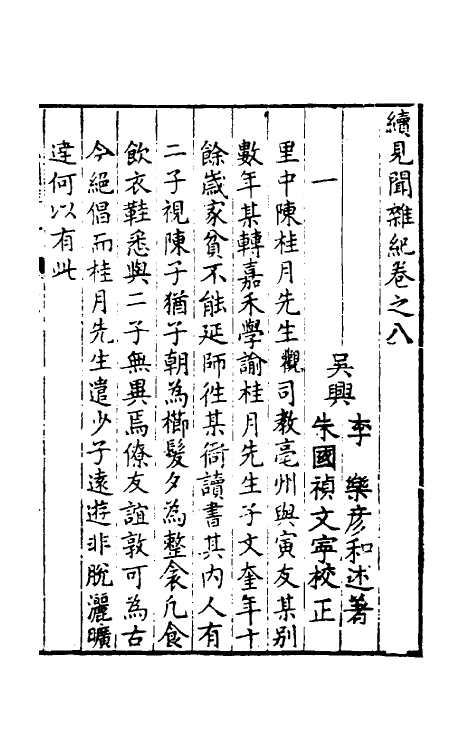 續見聞雜紀卷之八
吳興
李樂彥和述著
朱國禎文寧校正
一
里中陳桂月先生觀司教亳州與寅友某別
數年某轉嘉禾學諭桂月先生子文奎年十
餘歲家貧不能延師徃某衙讀書其内人有
二子視陳子猶子朝為櫛髮夕為整衾凡食
飲衣鞋悉與二子無異焉僚友誼敦可為古
今絕倡而桂月先生遣少子遠遊非脫灑曠
達何以有此